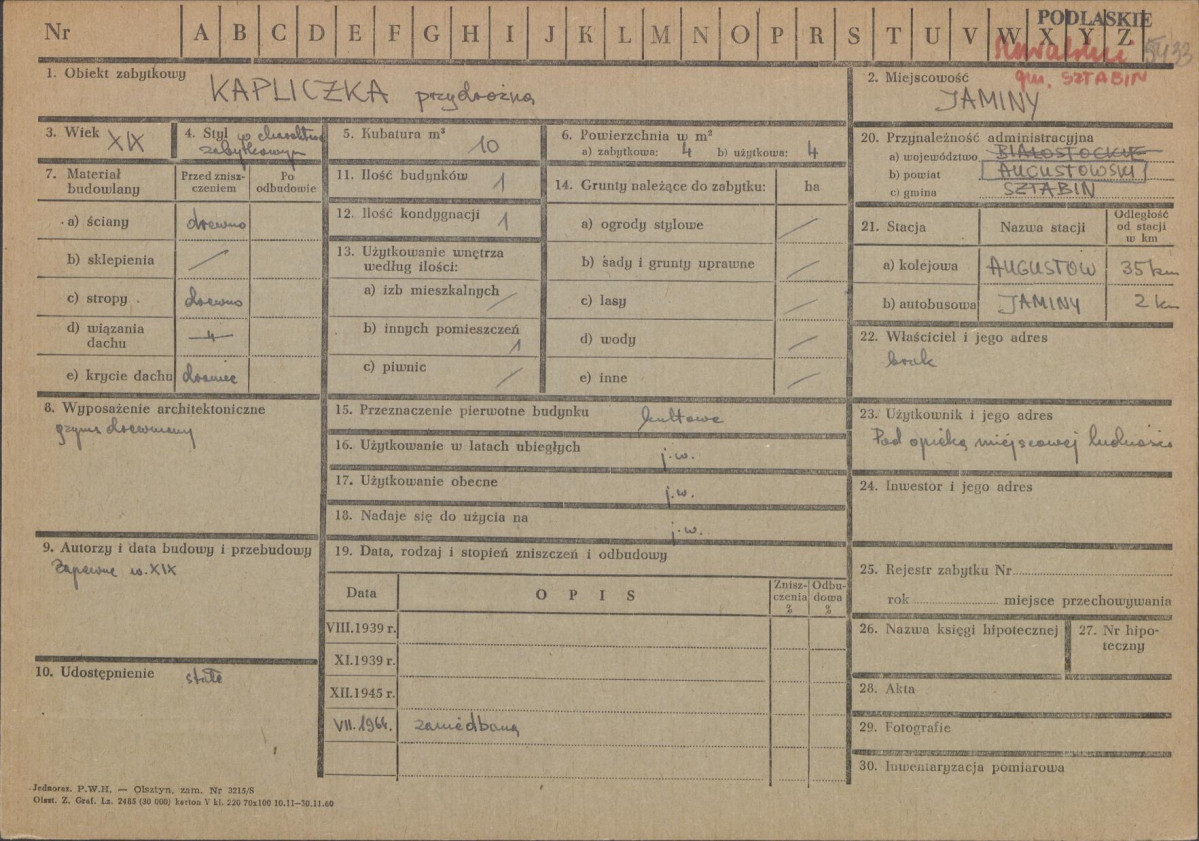 Nr A B C D E F G H I J K L M N O P R S T U V W X Y Z
PODLASKIE
5433
Suwalskie
gm. SZTABIN
1. Obiekt zabytkowy
KAPLICZKA przydrożna
2. Miejscowość
JAMINY
3. Wiek XIX
4. Styl w charakterze
zabytkowym
5. Kubatura m³
10
6. Powierzchnia w m²
a) zabytkowa: 4 b) użytkowa: 4
7. Materiał
budowlany
Przed znisz-
czeniem
Po
odbudowie
a) ściany drewno
b) sklepienia /
c) stropy drewno
d) wiązania
dachu
—„—
e) krycie dachu dranice
8. Wyposażenie architektoniczne
gzyms drewniany
9. Autorzy i data budowy i przebudowy
Zapewne w. XIX
10. Udostępnienie stałe
11. Ilość budynków 1
12. Ilość kondygnacji 1
13. Użytkowanie wnętrza
według ilości:
a) izb mieszkalnych /
b) innych pomieszczeń
1
c) piwnic /
14. Grunty należące do zabytku: ha
a) ogrody stylowe /
b) sady i grunty uprawne /
c) lasy /
d) wody /
e) inne /
15. Przeznaczenie pierwotne budynku kultowe
16. Użytkowanie w latach ubiegłych j.w.
17. Użytkowanie obecne j.w.
18. Nadaje się do użycia na j.w.
19. Data, rodzaj i stopień zniszczeń i odbudowy
Data OPIS Znisz-
czenia
% Odbu-
dowa
%
VIII.1939 r.
XI.1939 r.
XII.1945 r.
VII.1964. zaniedbana
20. Przynależność administracyjna
a) województwo BIAŁOSTOCKIE
b) powiat AUGUSTOWSKI
c) gmina SZTABIN
21. Stacja Nazwa stacji Odległość
od stacji
w km
a) kolejowa AUGUSTÓW 35 km
b) autobusowa JAMINY 2 km
22. Właściciel i jego adres
brak
23. Użytkownik i jego adres
Pod opieką miejscowej ludności
24. Inwestor i jego adres
25. Rejestr zabytku Nr
rok miejsce przechowywania
26. Nazwa księgi hipotecznej
27. Nr hipo-
teczny
28. Akta
29. Fotografie
30. Inwentaryzacja pomiarowa
Jednoraz. P.W.H. — Olsztyn, zam. Nr 3215/S
Olszt. Z. Graf. Lz. 2485 (30 000) karton V kl. 220 70x100 10.11—30.11.60